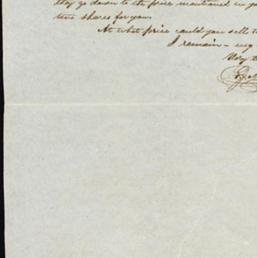 they go down to the price mentioned in yo
tive shares for you.
At what price could you sell t
I remain - my